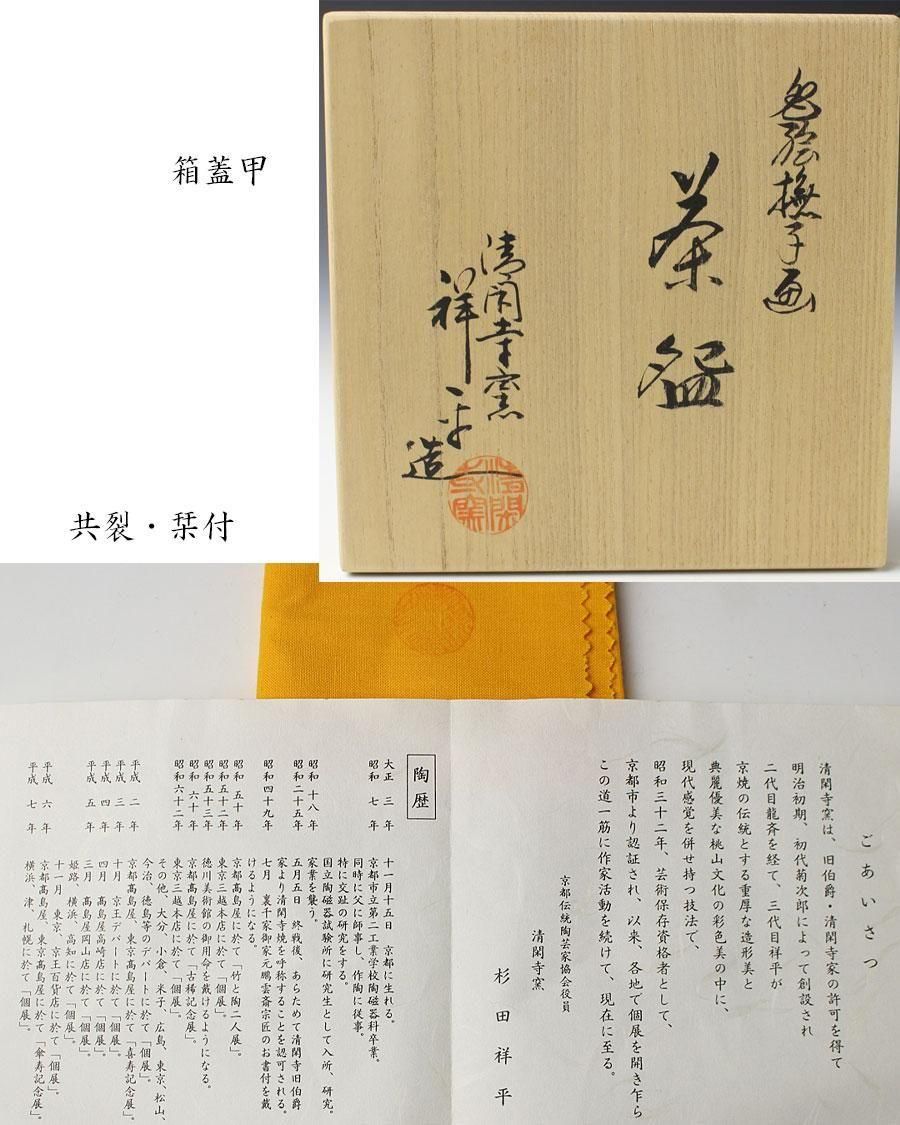 箱蓋甲
色絵撫子画
茶盌
清閑寺窯
祥平造
共裂・栞付
ごあいさつ
清閑寺窯は、旧伯爵・清閑寺家の許可を得て
明治初期、初代菊次郎によって創設され
二代目龍斉を経て、三代目祥平が
京焼の伝統とする重厚な造形美と
典麗優美な桃山文化の彩色美の中に、
現代感覚を併せ持つ技法で、
昭和三十二年、芸術保存資格者として、
京都市より認証され、以来、各地で個展を開き乍ら
この道一筋に作家活動を続けて、現在に至る。
京都伝統陶芸家協会役員
清閑寺窯
杉田祥平
陶歴
大正 三 年 十一月十五日 京都に生れる。
昭和 七 年 京都市立第二工業学校陶磁器科卒業。
同時に父に師事し、作陶に従事。
特に交趾の研究をする。
国立陶磁器試験所に研究生として入所、研究。
昭和 十八 年 家業を襲う。
昭和二十五年 五月五日 終戦後、あらためて清閑寺旧伯爵
家より清閑寺焼を呼称することを認可される。
昭和四十九年 七月 裏千家御家元鵬雲斎宗匠のお書付を戴
けるようになる。
昭和 五十 年 京都高島屋に於て「竹と陶二人展」。
昭和五十二年 東京三越本店に於て「個展」。
昭和五十三年 徳川美術館の御用命を戴けるようになる。
昭和 六十 年 京都高島屋に於て「古稀記念展」。
昭和六十二年 東京三越本店に於て「個展」。
その他、大分、小倉、米子、広島、東京、松山、
今治、徳島等のデパートに於て「個展」。
平成 二 年 京都高島屋、東京高島屋に於て「喜寿記念展」。
平成 三 年 十月 京王デパートに於て「個展」。
平成 四 年 四月 高島屋高崎店に於て「個展」。
平成 五 年 三月 高島屋岡山店に於て「個展」。
姫路、横浜、高知に於て「個展」。
十一月 東京、京王百貨店に於て「個展」。
平成 六 年 京都高島屋、東京高島屋に於て「傘寿記念展」。
平成 七 年 横浜、津、札幌に於て「個展」。